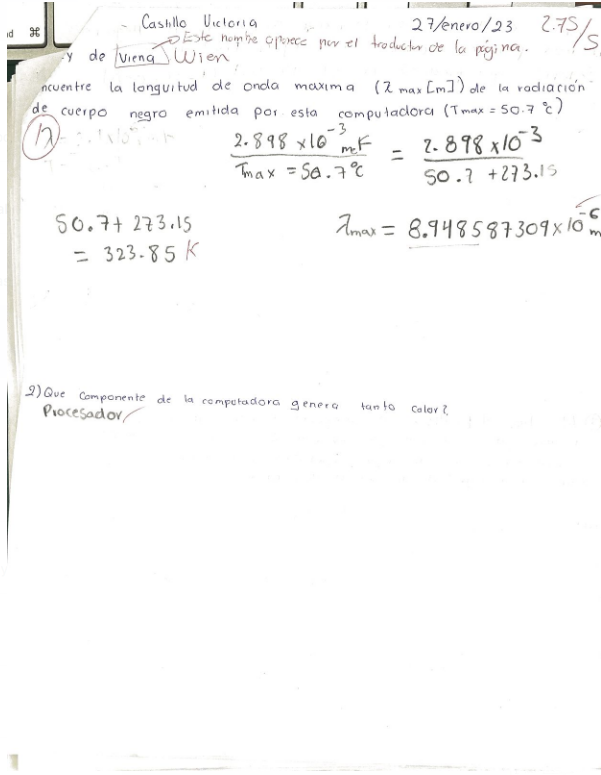 Castillo Victoria 27/enero/23 2.75/5
Este nombre aparece por el traductor de la página.
y de Viena Wien
ncuentre la longuitud de onda maxima (λ max [m]) de la radiación
de cuerpo negro emitida por esta computadora (Tmax = 50.7 °C)
2.898 x10^-3 / Tmax = 50.7°C = 2.898 x10^-3 / 50.7 + 273.15
50.7 + 273.15
= 323.85 K
λmax = 8.948587309 x 10^-6 m
2) Que componente de la computadora genera tanto calor?
Procesador